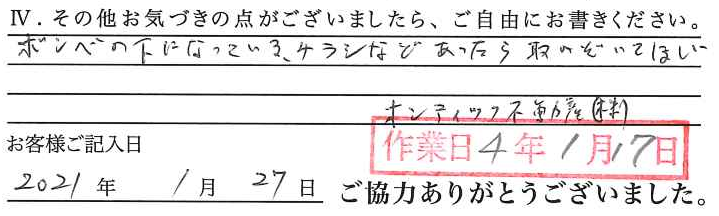 Ⅳ．その他お気づきの点がございましたら、ご自由にお書きください。
ボンベの下になっている、チラシなどあったら取のぞいてほしい
ホンティック不動産(株)
作業日 4年 1月17日
お客様ご記入日
2021年 1月 27日 ご協力ありがとうございました。